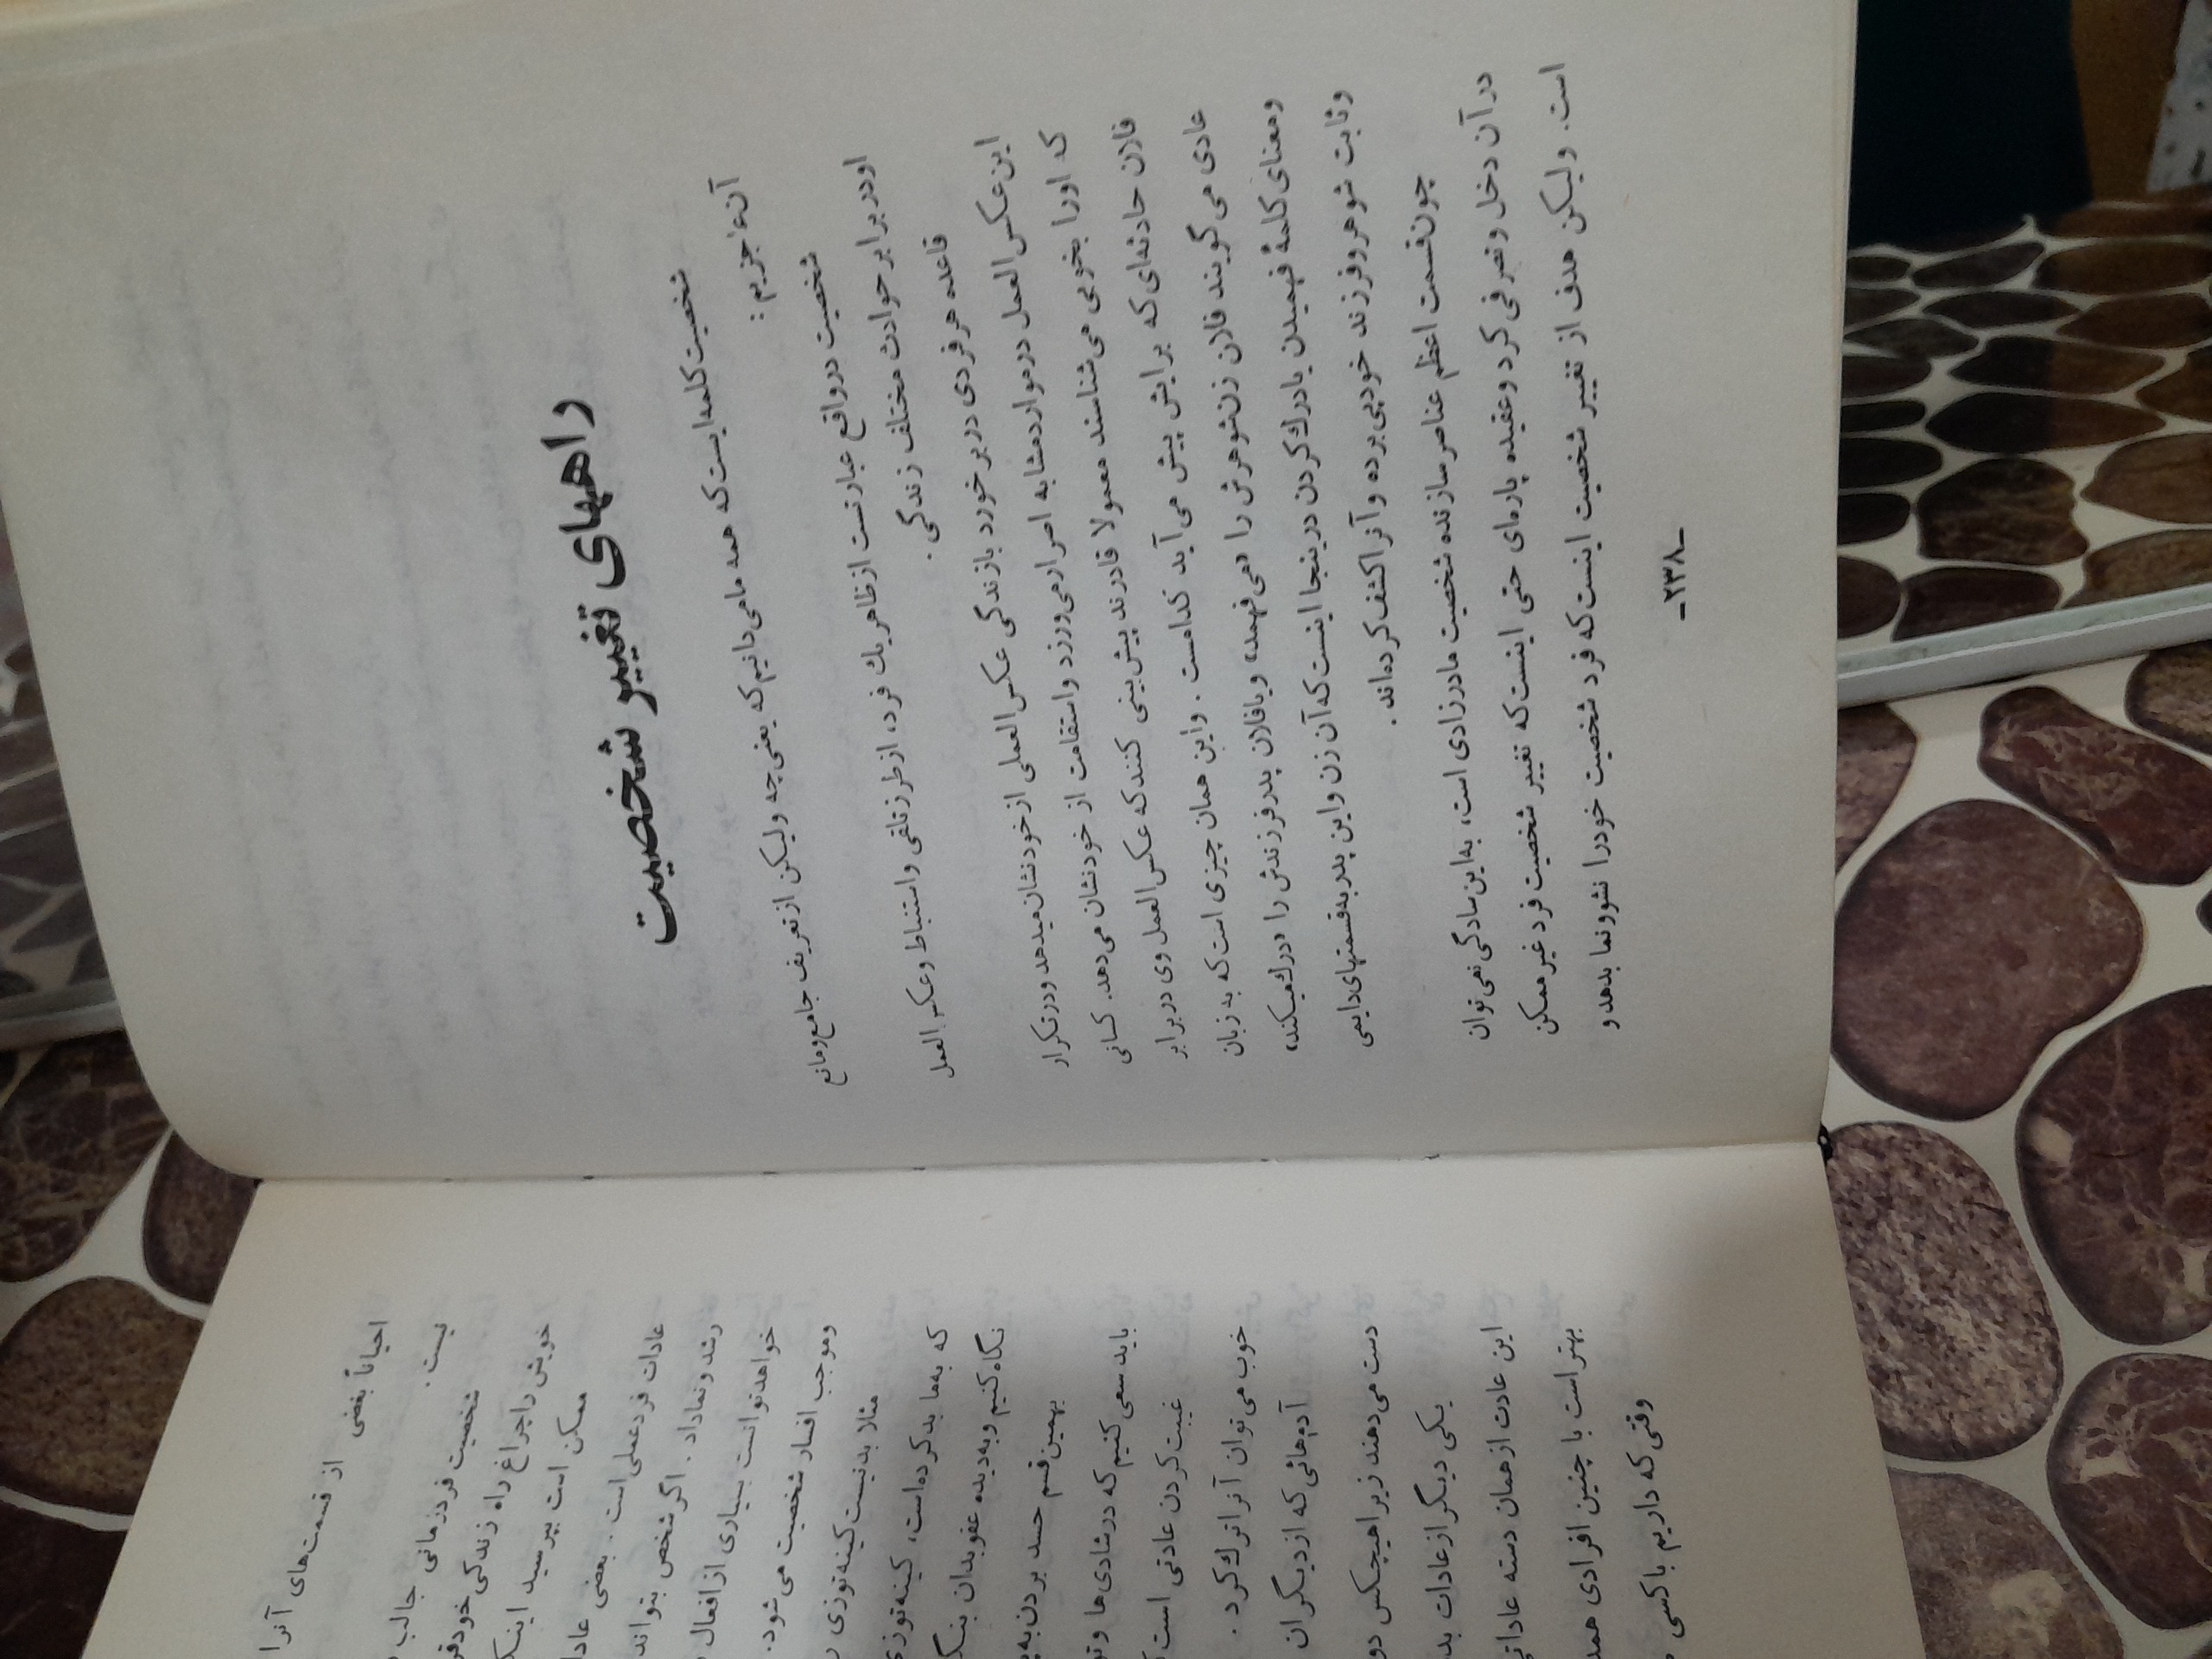 راههای تغییر شخصیت
شخصیت کلمه ایست که همه ما می دانیم که یعنی چه ولیکن از تعریف جامع و مانع
آن عاجزیم:
شخصیت در واقع عبارتست از ظاهر یك فرد، از طرز تلقی و استنباط و عکس العمل
او در برابر حوادث مختلف زندگی.
قاعده هر فردی در برخورد با زندگی عکس العملی از خود نشان میدهد و در تکرار
این عکس العمل در موارد مشابه اصرار می ورزد و استقامت از خود نشان می دهد. کسانی
که او را بخوبی می شناسند معمولا قادرند پیش بینی کنند که عکس العمل وی در برابر
فلان حادثه ای که برایش پیش می آید کدامست. و این همان چیزی است که به زبان
عادی می گویند فلان زن شوهرش را «می فهمد» و یا فلان پدر فرزندش را «درك میکند»
و معنای کلمهٔ فهمیدن یا درك کردن در ینجا اینست که آن زن و این پدر به قسمتهای دایمی
و ثابت شوهر و فرزند خود پی برده و آنرا کشف کرده اند.
چون قسمت اعظم عناصر سازنده شخصیت مادرزادی است، به این سادگی نمی توان
در آن دخل و تصرفی کرد و عقیده پاره ای حتی اینست که تغییر شخصیت فرد غیر ممکن
است. ولیکن هدف از تغییر شخصیت اینست که فرد شخصیت خود را نشوونما بدهد و
-۲۳۸-
احیاناً بعضی از قسمت های آنرا
نیست.
شخصیت فرد زمانی جالب
خویش را چراغ راه زندگی خود
ممکن است بپرسید
عادات فرد عملی است. بعضی
رشد و نما داد. اگر شخص بتواند
خواهد توانست بسیاری از افعال
و موجب افساد شخصیت می شود.
مثلا بد نیست کینه توزی
که به ما بد کرده است، کینه توزی
نگاه کنیم و به دیده عفو بدان
بهمین قسم حسد بردن
باید سعی کنیم که در شادی ها و
غیبت کردن عادتی است
خوب می توان آنرا ترك کرد.
آدم هائی که از دیگران
دست می دهند زیرا هیچکس
یکی دیگر از عادات بد
این عادت از همان دسته
بهتر است با چنین افرادی
وقتی که داریم با کسی